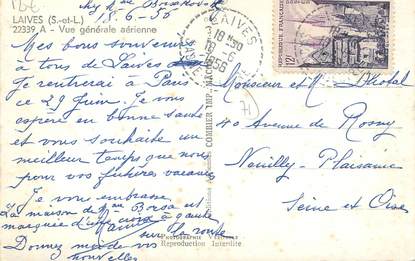 LAIVES (S.-et-L.)
22339. A - Vue générale aérienne
18-6-56
Mes bons souvenirs
à tous de Laives
Je rentrerai à Paris
ce 29 Juin. Je vous
espère en bonne santé
et vous souhaite un
meilleur temps que nous
pour vos futures vacances
Je vous embrasse
La maison de Mme
est
marquée d'une croix à gauche
sur la route
Donnez moi de vos
nouvelles
COMBIER IMP. MACON
PHOTOGRAPHIE VÉRITABLE
Reproduction Interdite
LAIVES
18 -6
1956
12F
Monsieur et M.
40 avenue de Rosny
Neuilly-Plaisance
Seine et Oise